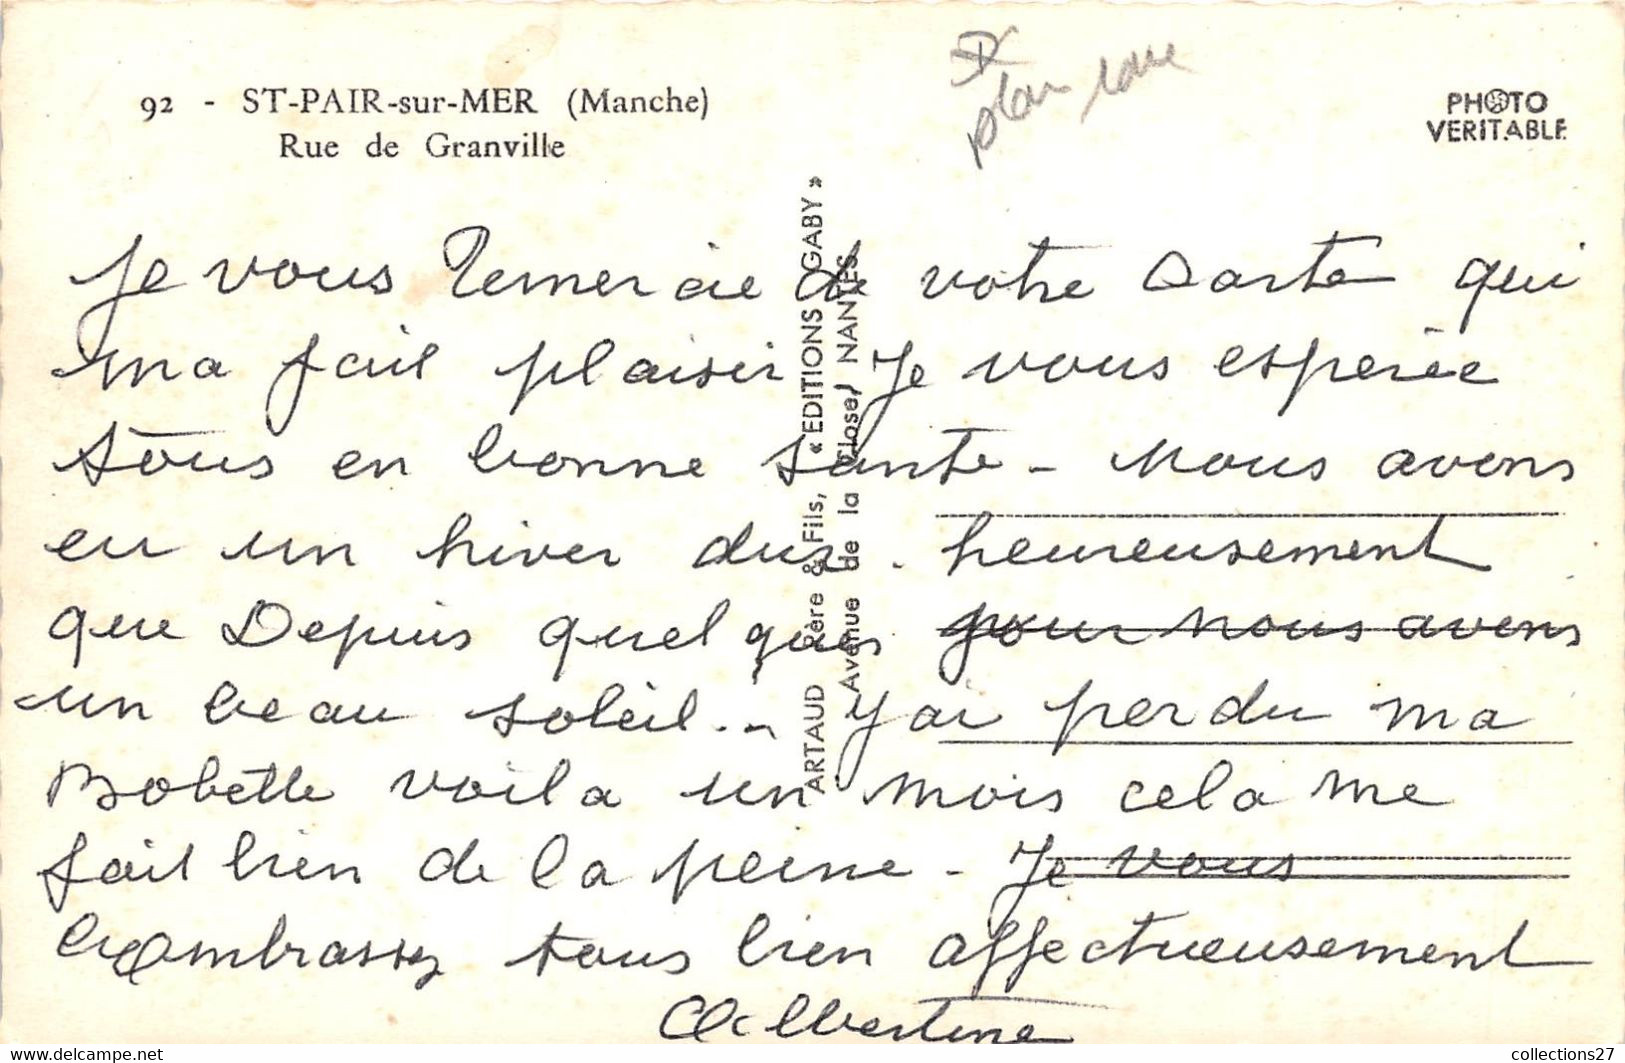 92 - ST-PAIR-sur-MER (Manche)
Rue de Granville
PHOTO
VERITABLE
ARTAUD Père & Fils, « EDITIONS GABY »
Avenue de la Close, NANTES
Je vous remercie de votre carte qui
ma fait plaisir Je vous esperèe
tous en bonne sante - nous avons
eu un hiver dur. heureusement
que Depuis quelques jour nous avons
un beau soleil.. - J'ai perdu ma
Bobette voila un mois cela me
fait bien de la peine - Je vous
embrassez tous bien affectueusement
Albertine
collections27